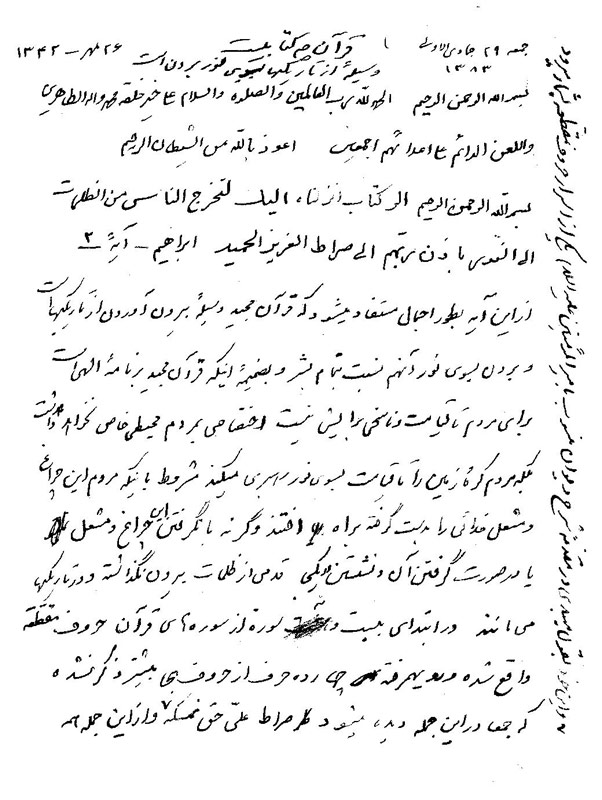 جمعه ۲۹ جمادی الاولی ۱۳۸۳
۱
قرآن چه کتابیست
۲۶ مهر ـ ۱۳۴۲
وسیلهٔ از تاریکیها بسوی نور بردن است
بسم الله الرحمن الرحیم الحمدلله رب العالمین والصلوة والسلام علی خیر خلقه محمد واله الطاهرین
واللعن الدائم علی اعدائهم اجمعین اعوذ بالله من الشیطان الرجیم
بسم الله الرحمن الرحیم الر کتاب انزلناه الیک لتخرج الناس من الظلمات
الی النور باذن ربهم الی صراط العزیز الحمید ابراهیم ـ آیهٔ ۲
از این آیه بطور اجمالی مستفاد میشود که قرآن مجید وسیلهٔ بیرون آوردن از تاریکیها است
و بردن بسوی نور آنهم نسبت بتمام بشر و بضمیمهٔ اینکه قرآن مجید برنامهٔ الهی است
برای مردم تا قیامت و ناسخی برایش نیست اختصاصی بمردم محیطی خاص نخواهد داشت
بلکه مردم کرهٔ زمین را تا قیامت بسوی نور رهبری میکند مشروط باینکه مردم این چراغ
و مشعل خدائی را بدست گرفته براه افتند وگرنه با نگرفتن این چراغ و مشعل
یا در صورت گرفتن آن و نشستن قدمی از ظلمات بیرون نگذاشته و در تاریکیها
می مانند در ابتدای بیست و سوره از سوره های قرآن حروف مقطعه
واقع شده و رویهمرفته چهارده حرف از حروف تهجی بیشتر ذکر نشده
که جمعا در این جمله دیده میشود صراط علی حق نمسکه و از این جمله